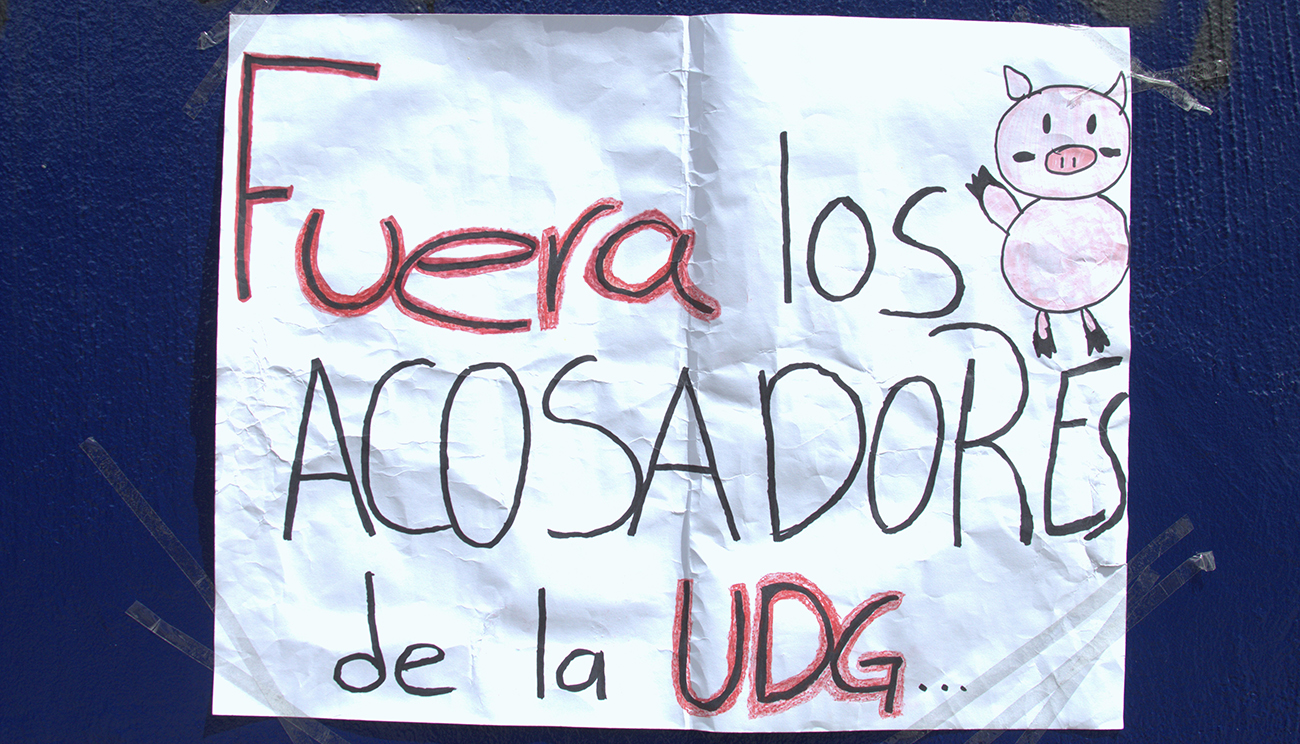 Fuera los
ACOSADORES
de la UDG...